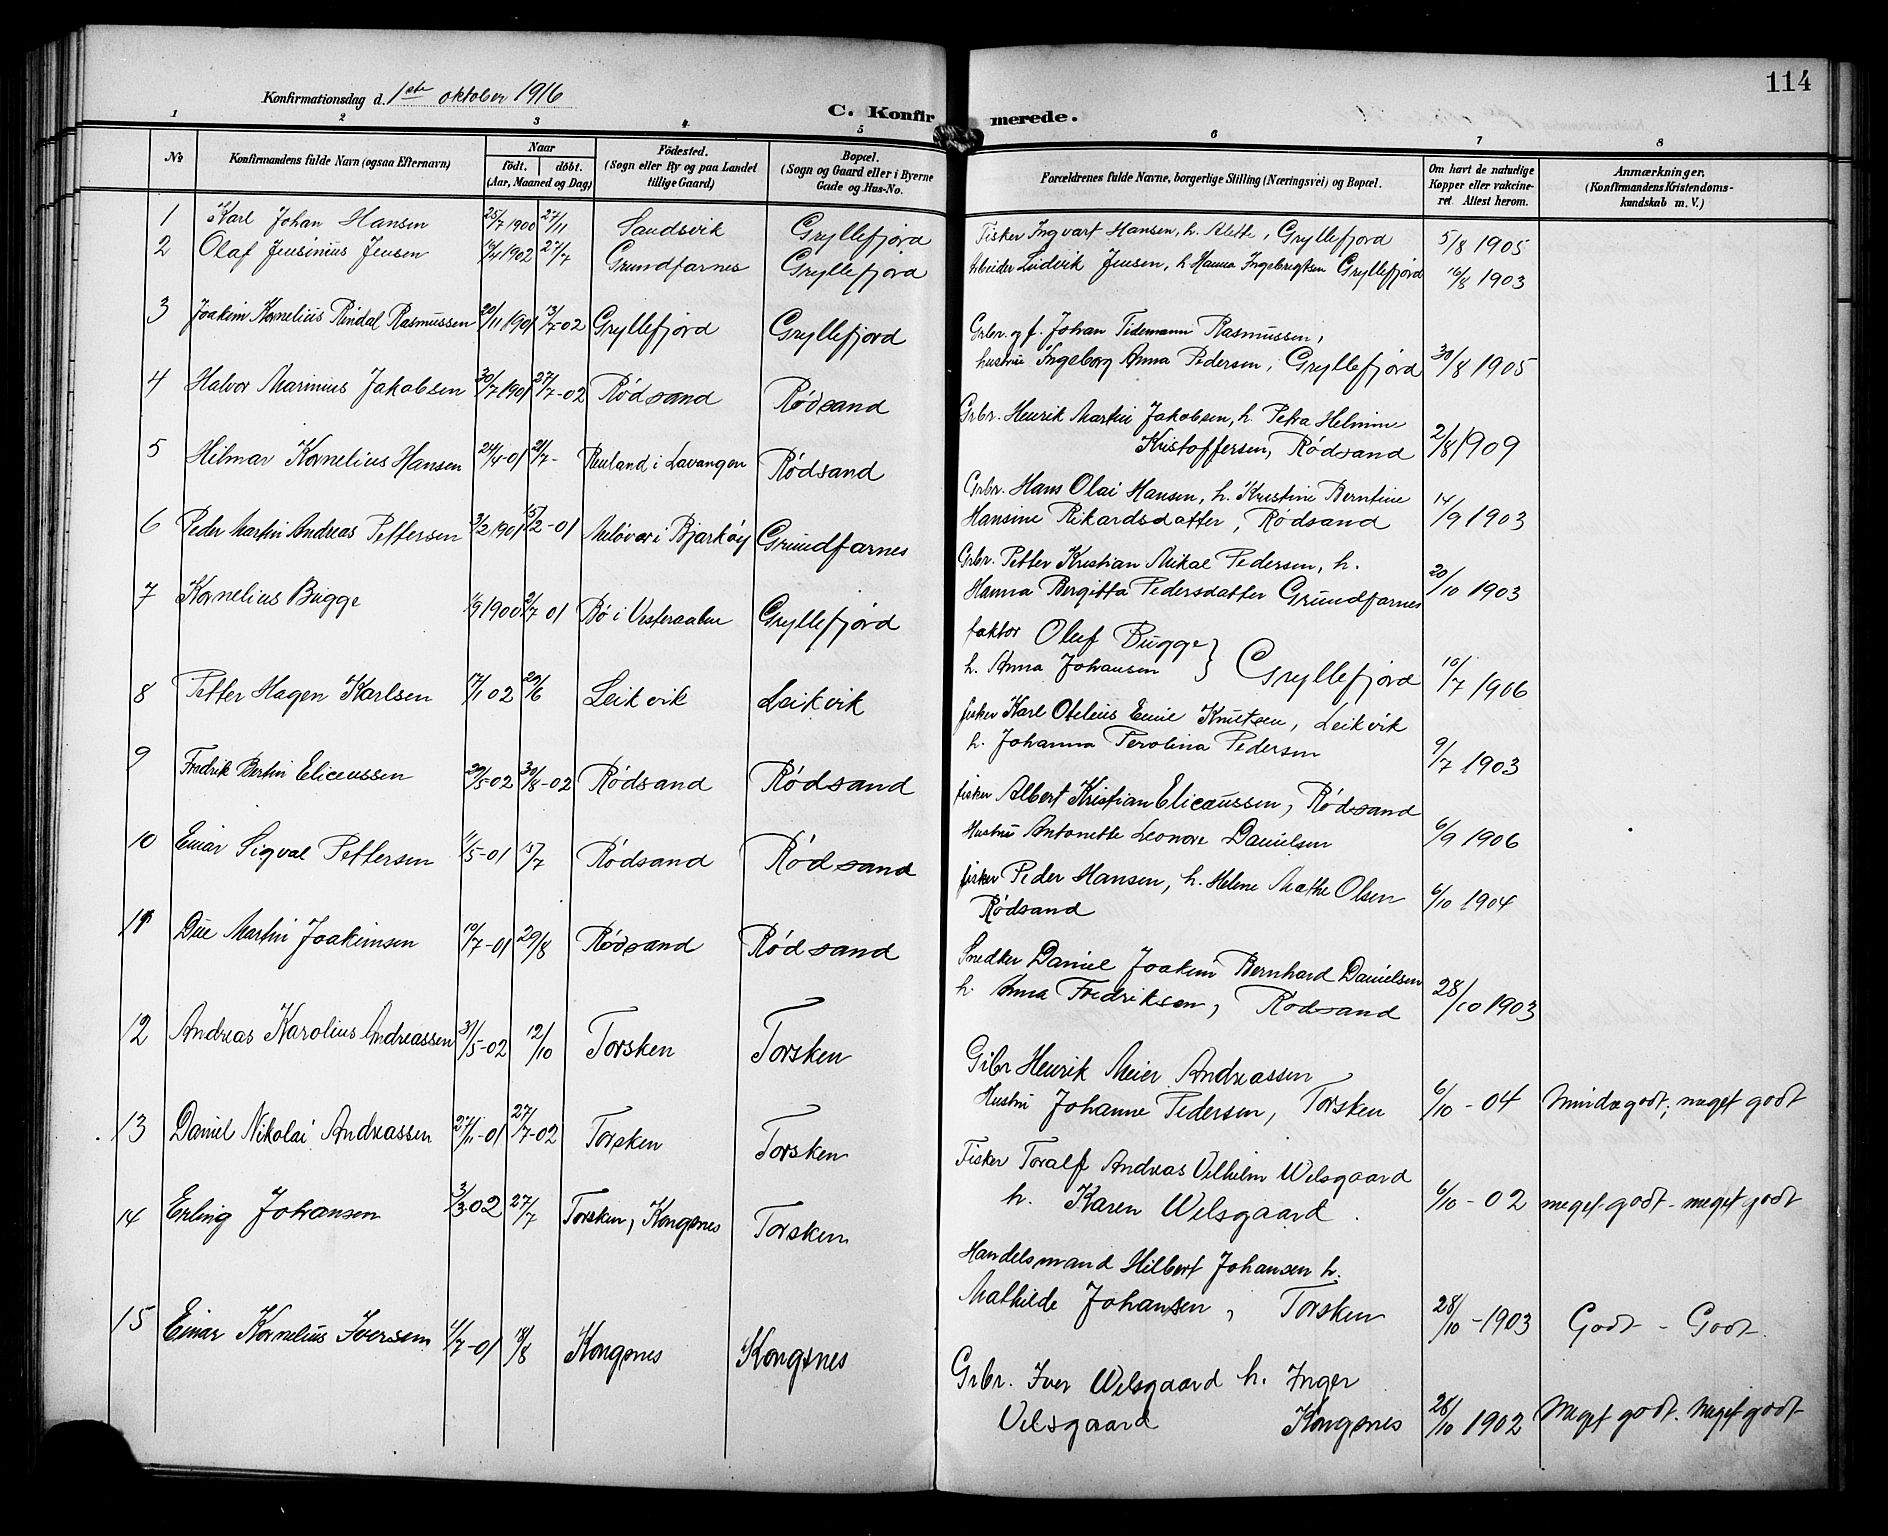 114
Konfirmationsdag d. 1ste oktober 1916
C. Konfirmerede.
1 2 3 4 5 6 7 8
No
Konfirmandens fulde Navn (ogsaa Efternavn)
Naar
født. døbt.
(Aar, Maaned og Dag)
Födested.
(Sogn eller By og paa Landet
tillige Gaard)
Bopæl.
(Sogn og Gaard eller i Byerne
Gade og Hus-No.
Forældrenes fulde Navne, borgerlige Stilling (Næringsvei) og Bopæl.
Om havt de naturlige
Kopper eller vakcine-
ret. Attest herom.
Anmærkninger.
(Konfirmandens Kristendoms-
kundskab m. V.)
1 Karl Johan Hansen 25/7 1900 27/11 Sandsvik Gryllefjord
Fisker Ingvart Hansen, h. Alette, Gryllefjord 5/8 1905
2 Olaf Jensinius Jensen 14/4 1902 27/7 Grundfarnes Gryllefjord
Arbeider Ludvik Jensen, h Hanna Ingebrigtsen Gryllefjord 16/8 1903
3 Joakim Kornelius Rindal Rasmussen 20/11 1901 13/7-02 Gryllefjord Gryllefjord
Grbr. og f. Johan Tidemann Rasmussen,
hustru Ingeborg Anna Pedersen, Gryllefjord 30/8 1905
4 Halvor Marinius Jakobsen 30/7 1901 27/7-02 Rödsand Rödsand
Grbr. Henrik Martin Jakobsen, h. Petra Helmine
Kristoffersen, Rödsand 2/8 1909
5 Hilmar Kornelius Hansen 24/4-01 21/7- i Lavangen Rödsand
Grbr. Hans Olai Hansen, h. Kristine Berntine
Hansine Rikardsdatter, Rödsand 14/9 1903
6 Peder Martin Andreas Pettersen 3/2 1901 /2-01 Meløvær i Bjarköy Grundfarnes
Grbr. Petter Kristian Mikal Pedersen, h.
Hanna Bergitta Pedersdatter Grundfarnes 20/10 1903
7 Kornelius Bugge 1/9 1900 2/7 01 Bö i Vesteraalen Gryllefjord
faktor Oluf Bugge
h. Anna Johansen } Gryllefjord 10/7 1906
8 Petter Hagen Karlsen 17/1 02 29/6 Leikvik Leikvik
fisker Karl Otelius Emil Knutsen, Leikvik
h. Johanna Perolina Pedersen 9/7 1903
9 Fredrik Bertin Eliceussen 29/5-02 30/8-02 Rödsand Rödsand
fisker Albert Kristian Elicaussen, Rödsand
Hustru Antonette Leonore Danielsen 6/9 1906
10 Einar Sigval Pettersen 11/5-01 /7 Rödsand Rödsand
fisker Peder Hansen, h. Helene Mathe Olsen
Rödsand 6/10 1904
11 Due Martin Joakimsen 19/7-01 29/8 Rödsand Rödsand
Snedker Daniel Joakim Bernhard Danielsen
h. Anna Fredriksen, Rodsand 28/10 1903
12 Andreas Karolius Andreassen 31/5-02 12/10 Torsken Torsken
Grbr Henrik Meier Andreassen
Hustru Johanne Pedersen, Torsken 6/10-04 Mindre godt; meget godt
13 Daniel Nikolai Andreassen 27/11-01 27/7-02 Torsken Torsken
Fisker Toralf Andreas Vilhelm Wilsgaard
h. Karen Wilsgaard. 6/10-02 meget godt - meget godt
14 Erling Johansen 3/3 02 27/7 Torsken, Kongsnes Torsken
Handelsmand Hilbert Johansen h.
Mathilde Johansen, Torsken 28/10-1903 Godt - Godt.
15 Einar Kornelius Iversen 4/7-01 18/8 Kongsnes Kongsnes
Grbr. Iver Wilsgaard h. Inger
Vilsgaard Kongsnes 26/10 1902 Meget godt. Meget godt